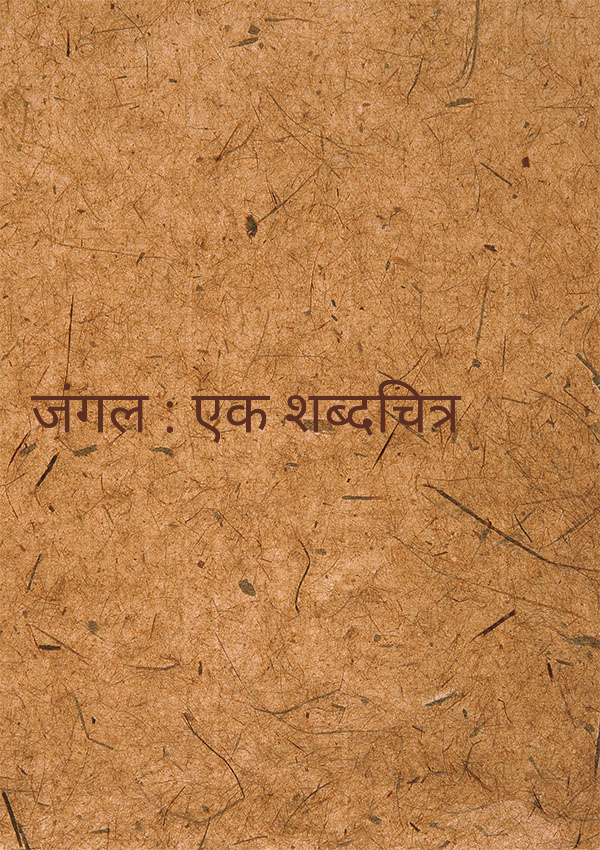 जंगल : एक शब्दचित्र